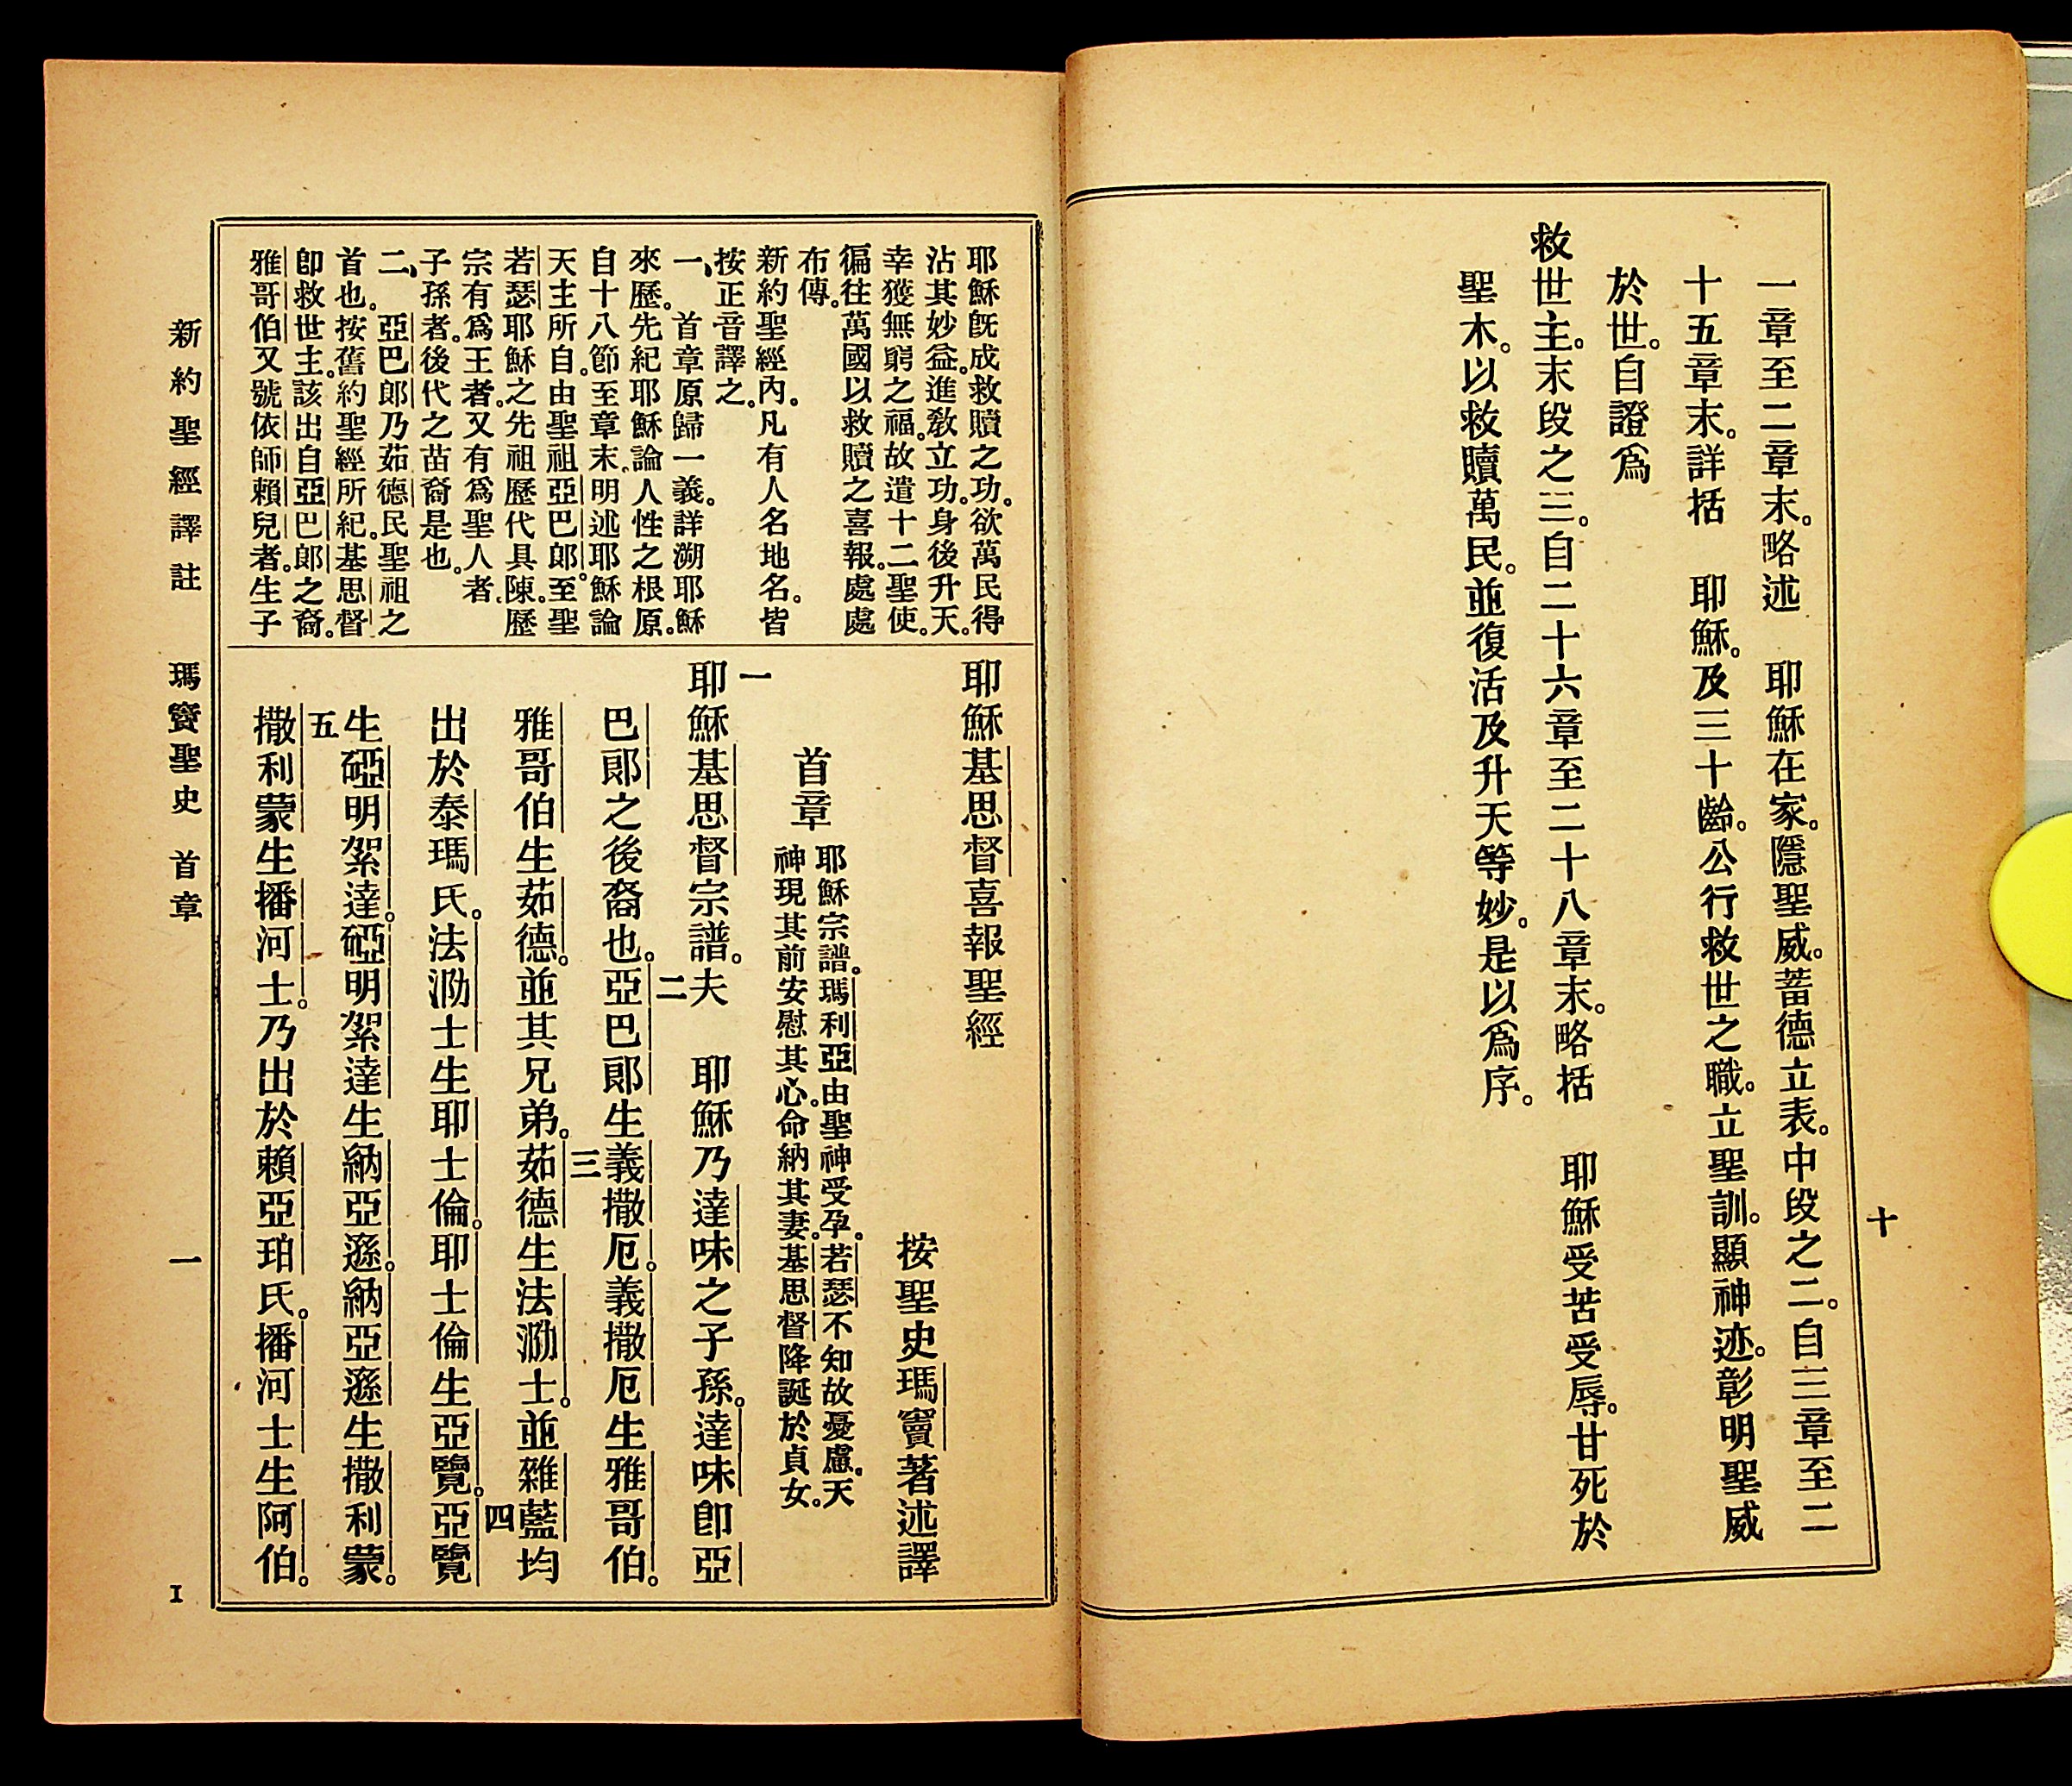 一章至二章末。略述　耶穌在家。隱聖威。蓄德立表。中段之二。自三章至二
十五章末。詳括　耶穌。及三十齡。公行救世之職。立聖訓。顯神迹。彰明聖威
於世。自證爲
救世主。末段之三。自二十六章至二十八章末。略括　耶穌受苦受辱。甘死於
聖木。以救贖萬民。並復活及升天等妙。是以爲序。
十
耶穌旣成救贖之功。欲萬民得
沾其妙益。進教立功。身後升天。
幸獲無窮之福。故遣十二聖使。
徧往萬國以救贖之喜報。處處
布傳。
新約聖經內。凡有人名地名。皆
按正音譯之。
一、首章原歸一義。詳溯耶穌
來歷。先紀耶穌論人性之根原。
自十八節至章末。明述耶穌論
天主所自。由聖祖亞巴郎。至聖
若瑟耶穌之先祖歷代具陳。歷
宗有爲王者。又有爲聖人者。
子孫者。後代之苗裔是也。
二、亞巴郎乃茹德民聖祖之
首也。按舊約聖經所紀。基思督
卽救世主。該出自亞巴郎之裔。
雅哥伯又號依師賴兒者。生子
耶穌基思督喜報聖經
按聖史瑪竇著述譯
首章
耶穌宗譜。瑪利亞由聖神受孕。若瑟不知故憂慮。天
神現其前安慰其心。命納其妻。基思督降誕於貞女。
一
耶穌基思督宗譜。二夫　耶穌乃達味之子孫。達味卽亞
巴郎之後裔也。亞巴郎生三義撒厄。義撒厄生雅哥伯。
雅哥伯生茹德。並其兄弟。茹德生法泐士。並雜藍均
出於泰瑪氏。法泐士生耶士倫。耶士倫生亞覽。四亞覽
生硏明絮達。硏明絮達生納亞遜。納亞遜生撒利蒙。
五撒利蒙生播河士。乃出於賴亞珀氏。播河士生阿伯。
新約聖經譯註　瑪竇聖史　首章
一
I